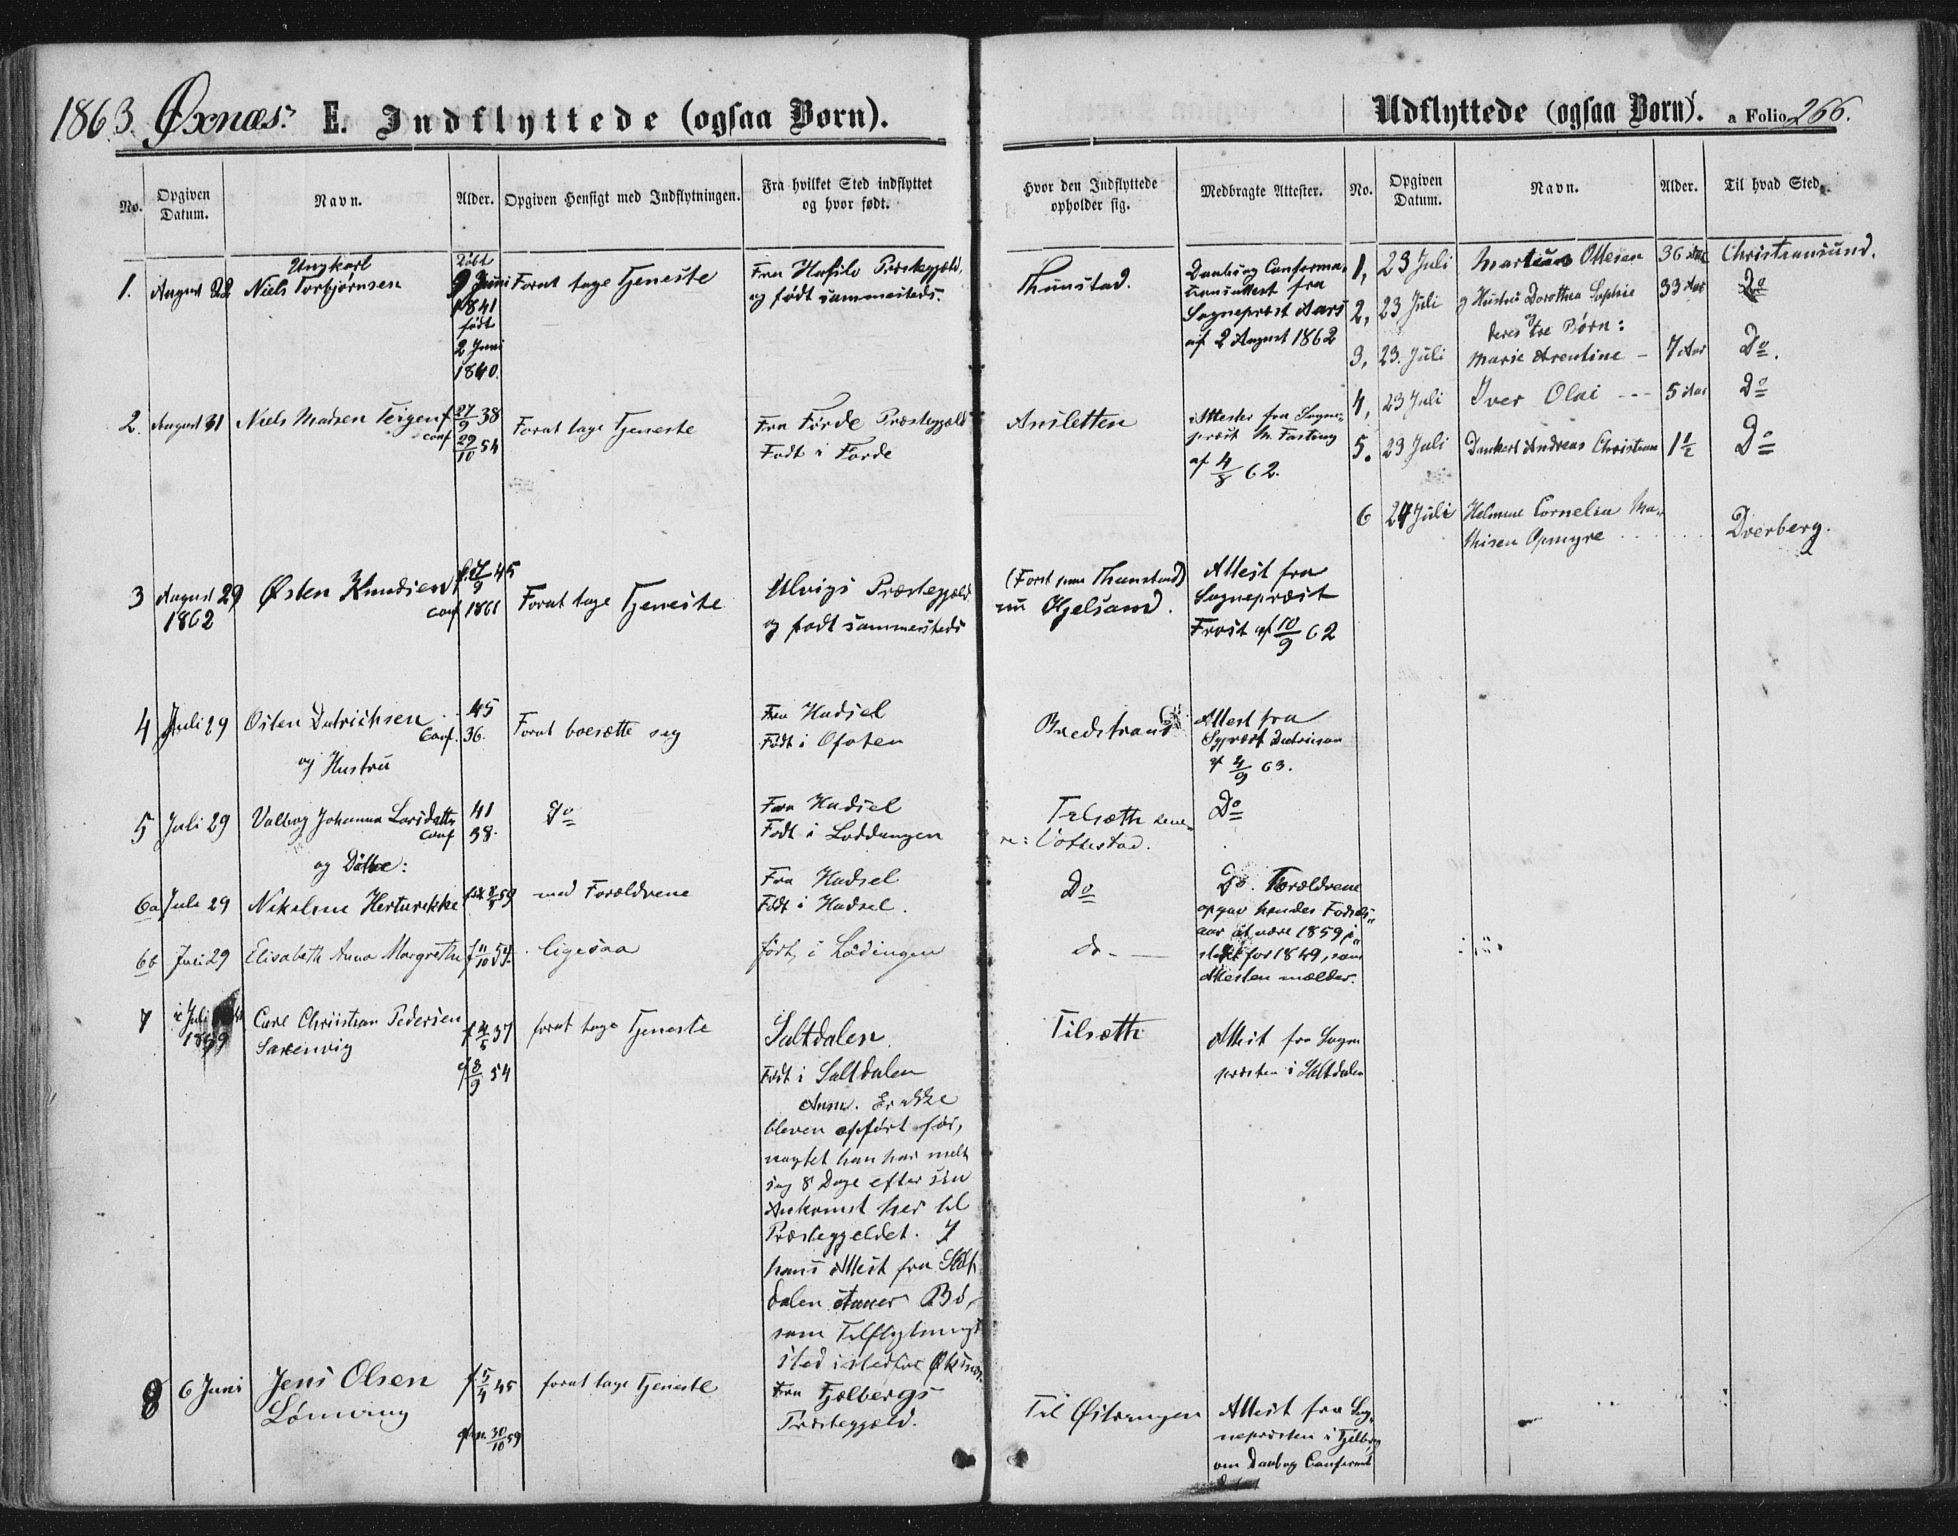 1863. Øxnæs: E. Indflyttede (ogsaa Børn).
Udflyttede (ogsaa Børn). a Folio 266.
No. Opgiven Datum. Navn. Alder. Opgiven Hensigt med Indflytningen. Fra hvilket Sted indflyttet og hvor født.
Hvor den Indflyttede opholder sig. Medbragte Attester. No. Opgiven Datum. Navn. Alder. Til hvad Sted.
1. August 22 Ungkarl
Niels Torbjørnsen
Døbt
9 Juni
1841
født
2 Juni
1840.
Forat tage Tjeneste
Fra Præstegjæld,
og født sammesteds.
Thunstad.
Daabs og Conferma-
tionsattest fra
Sogneprest Aars
af 2 August 1862
2. August 31 Niels Madsen Teigen f 27/9 38
conf 29/10 54
Forat tage Tjeneste
Fra Førde Præstegjæld
Født i Førde
Ansletten
Attester fra Sogne-
præst M. Fasting
af 4/8 62.
3 August 29
1862
Østen Knudsen
conf 1861
f. 45
Forat tage Tjeneste
Ulvigs Præstegjæld
og født sammesteds
(Forst paa Thunstad)
nu Gjelsand.
Attest fra
Sognepræst
Frost af 10/9 62
4 Juli 29 Osten Didrichsen 45
Conf. 36.
og Hustru
Forat bosætte sig
Fra Hadsel
Født i Ofoten
Bredstrand
Attest fra
af 4/9 63.
5 Juli 29 Valborg Johanna Larsdatter 41
Conf 38.
og Døttre:
Do
Fra Hadsel
Født i Loddingen
Tilsæth
Vottestad.
Do
6a Juli 29 Nikoline
med Forældrene
Fra Hadsel
Født i Hadsel.
Do
Do. Forældrene
opgav hendes Fødsels-
aar at være 1859 i-
stedet for 1849, som
Attesten mælder.
6b Juli 29 Elisabeth Anna Margrethe f 11/10
ligesaa
født i Lödingen
do -
7 i Juli
1859
Carl Christian Pedersen
Saxenvig
f 4/5 37
8/9 54
forat tage Tjeneste
Saltdalen.
Født i Saltdalen
Anm. Er ikke
bleven opført før,
uagtet han har meldt
sig 8 Dage efter sin
Ankomst her til
Præstegjeldet. I
hans Attest fra Salt-
dalen staaer Bø,
som Tilflytnings
sted istedfor Øksnæs.
Tilsæth
Attest fra Sogne
præsten i Saltdalen
8 6 Juni Jens Olsen
Lønning
f 5/4 45
30/10 59
forat tage Tjeneste
Fra Fjelbergs
Præstegjeld.
Til
Attest fra Sog-
nepræsten i Fjelberg
om Daab og Confirmat
1, 23 Juli Martinus Ottesen 36 Aar Christiansund.
2, 23 Juli og Hustru Dorothea Sophie 33 Aar Do
deres tre Børn:
3, 23. Juli Marie Arentine - 7 Aar Do.
4, 23 Juli Iver Olai - - - 5 Aar Do
5. 23 Juli Dankert Andreas Christian 1½ Do
6 24 Juli Helmine Cornelia Ma-
thisen Opmyre Dverberg.